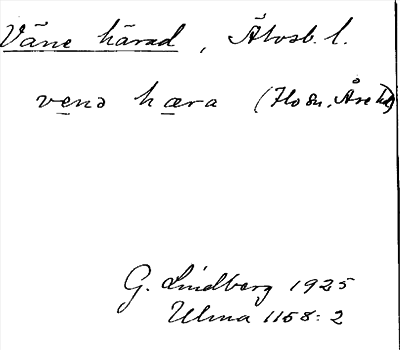 Väne härad, Älvsb. l.
venə hæra (Flo sn, Åse hd)
G. Lindberg 1925
Ulma 1158:2